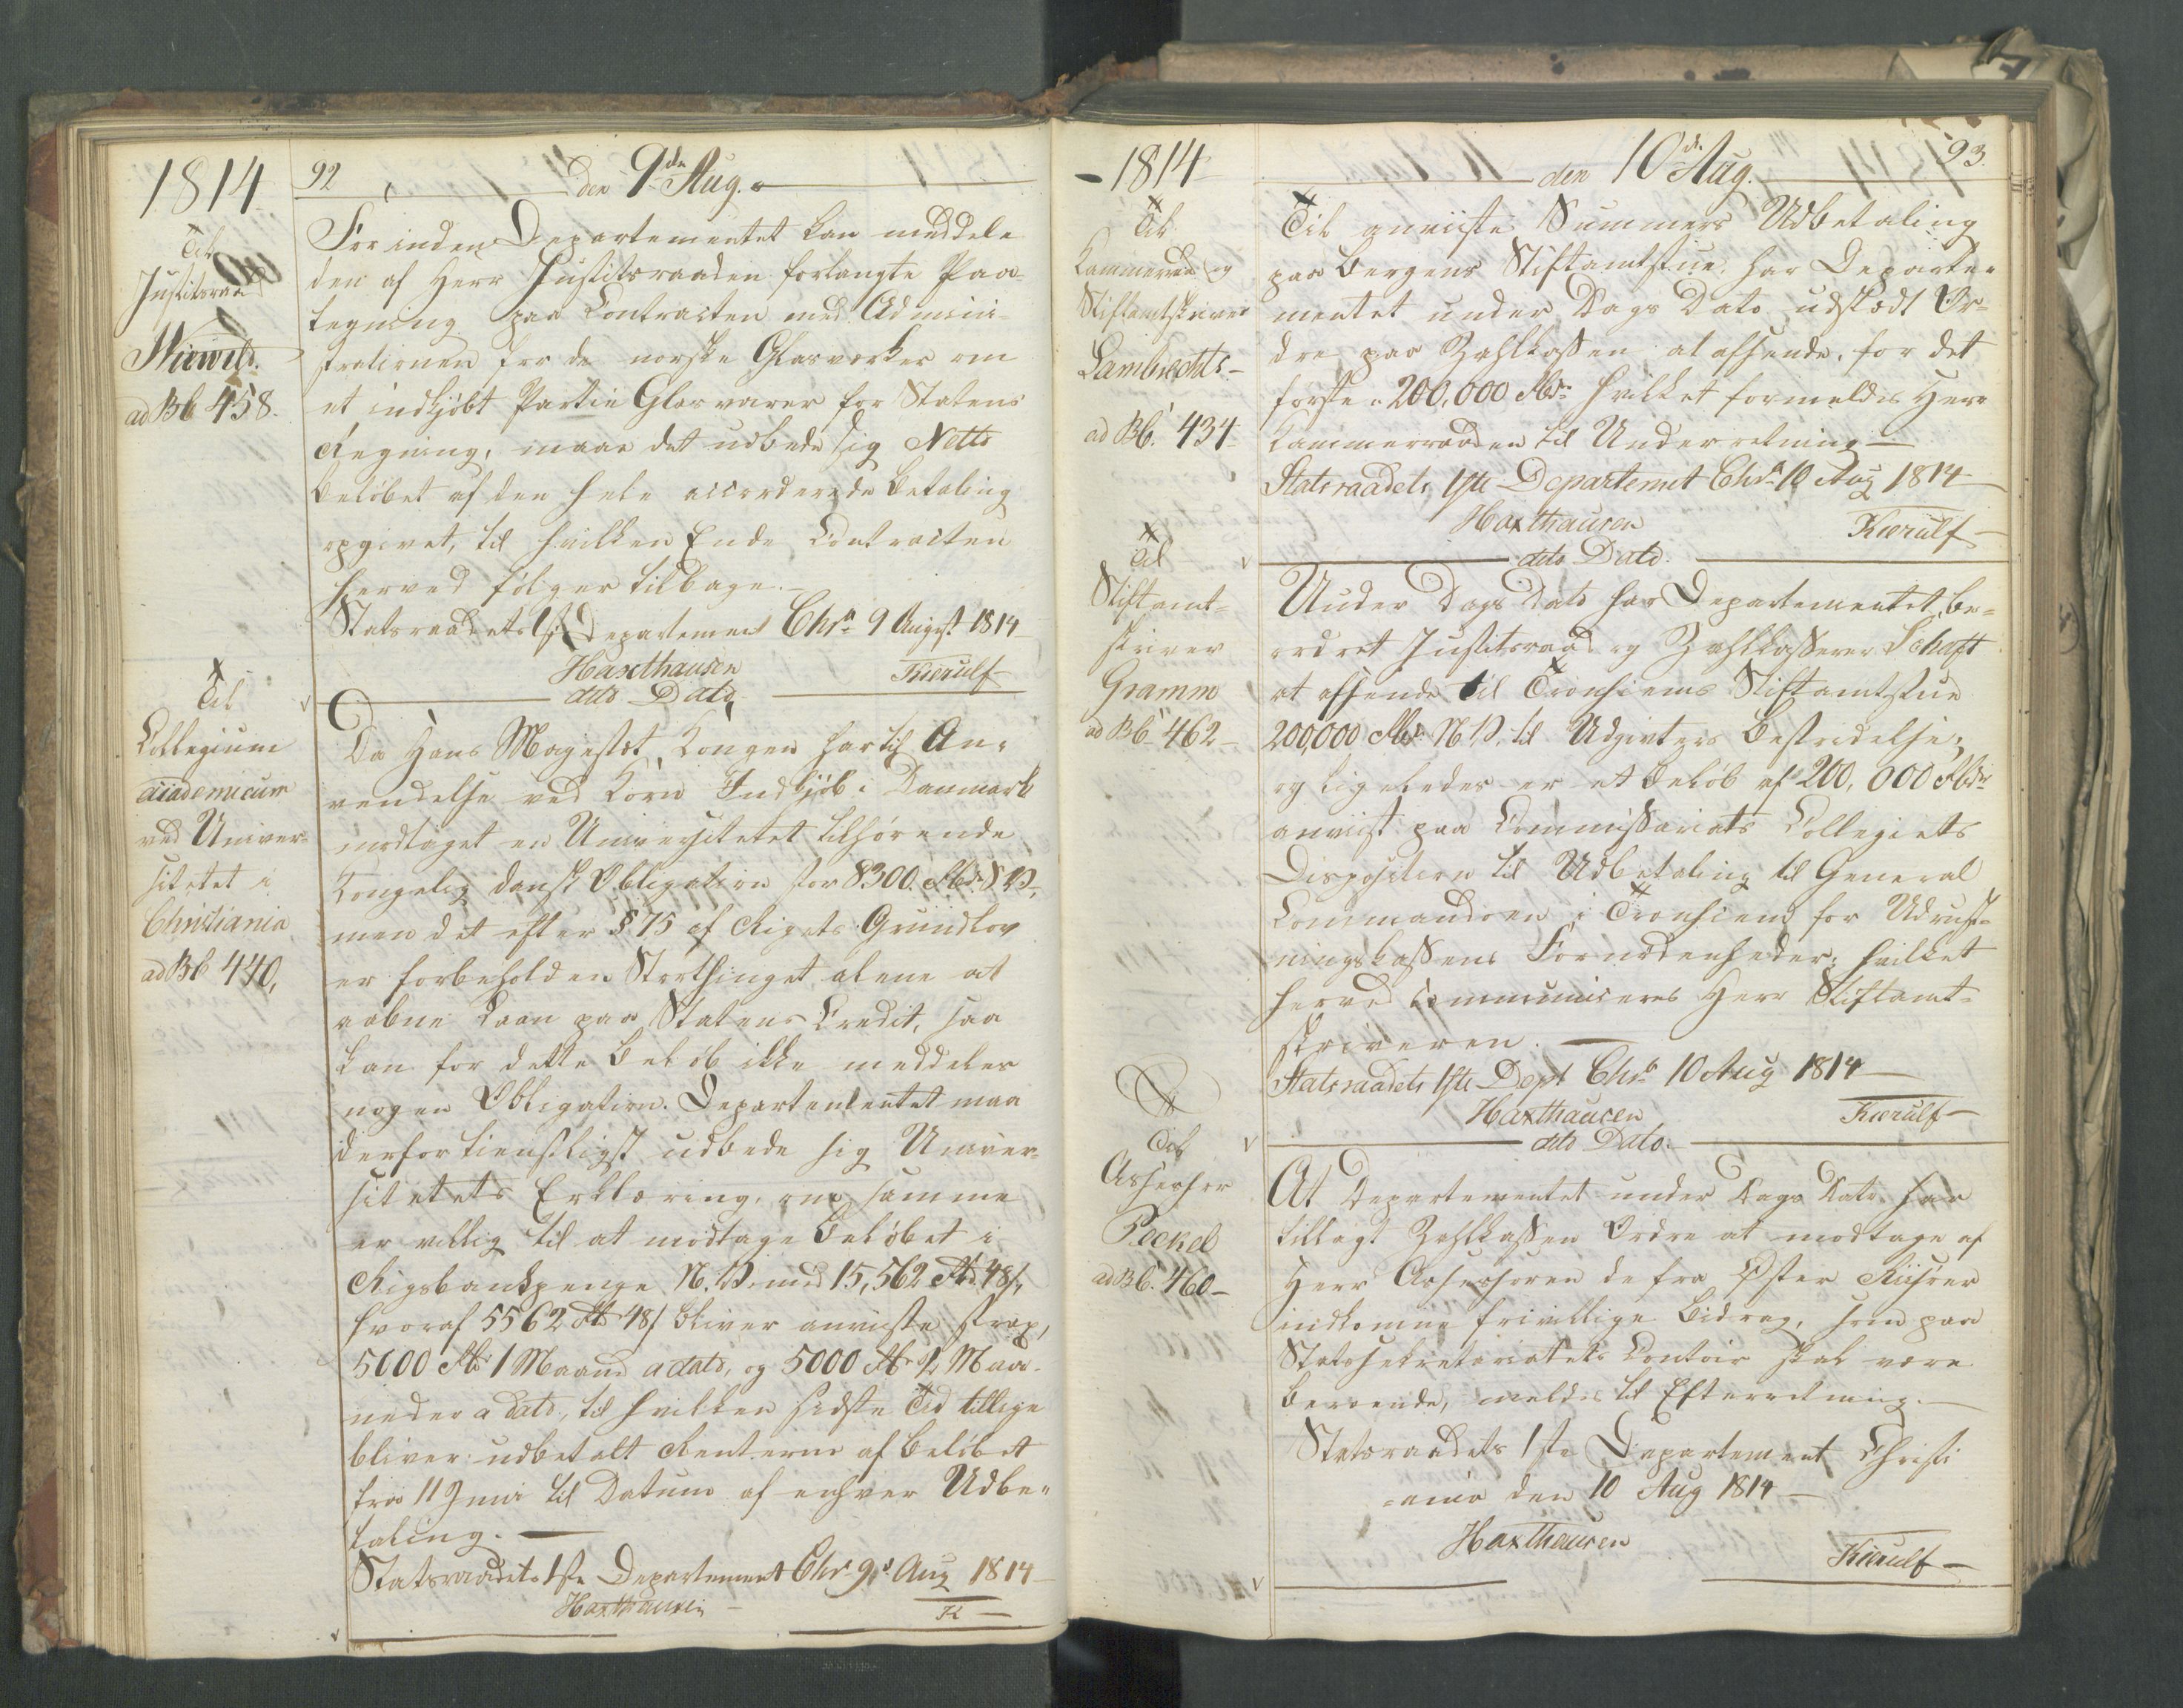 1814
92
den 9de Aug.
Til
Justitsraad
ad Bb 458.
Før inden Departementet kan meddele
den af Herr Justitsraaden forlangte Paa-
tegning paa Contracten med Admini-
strationen for de norske Glasværker om
et indkjøbt Partie Glasvarer for Statens
Regning, maae det udbede sig Netto
Beløbet af den hele accorderede Betaling
opgivet, til hvilken Ende Contracten
herved følger tilbage.
Statsraadets 1ste Departement Chra 9 August 1814
Haxthausen Kierulf
dito Dato
Til
Collegium
academicum
ved Univer-
sitetet i
Christiania
ad Bb 440,
Da Hans Majestæt Kongen har til An-
vendelse ved Korn Indkjøb i Danmark
modtaget en Universitetet tilhørende
Kongelig dansk Obligation stor 8300 Rbdr S.V.
men det efter § 75 af Rigets Grundlov
er forbeholden Storthinget alene at
aabne Laan paa Statens Credit, saa
kan for dette Beløb ikke meddeles
nogen Obligation. Departementet maa
derfor tienstligst udbede sig Univer-
sitetets Erklæring, om samme
er villig til at modtage Beløbet i
Rigsbankpenge N.V. med 15,562 Rbd. 48 s,
hvoraf 5562 Rbd 48 s bliver anviiste strax,
5000 Rbd 1 Maaned a dato, og 5000 Rbd 2 Maa-
neder a dato, til hvilken sidste Tid tillige
bliver udbetalt Renterne af Beløbet
fra 11 Juni til Datum af enhver Udbe-
taling.
Statsraadets 1ste Departement Chra 9de Aug 1814
Haxthausen K
1814
den 10de Aug.
93.
Til
Kammerraad og
Stiftamtskriver
Lambrechts
ad Bb. 434
Til anviiste Summers Udbetaling
paa Bergens Stiftamtstue, har Departe-
mentet under Dags Dato udstædt Or-
dre paa Zahlkassen at afsende, for det
første 200,000 Rbdr hvilket formeldes Herr
Kammerraaden til Underretning
Statsraadets 1ste Departemet Chra 10 Aug 1814
Haxthausen Kierulf
dito Dato.
Til
Stiftamt-
skriver
Gramm
ad Bb 462
Under Dags Dato har Departementet be-
ordret Justitsraad og Zahlkasserer Schaft
at afsende til Tronhiems Stiftamtstue
200,000 Rbdr N.V. til Udgivters Bestridelse;
og ligeledes er et Beløb af 200,000 Rbdr
anviist paa Commissariats Collegiets
Disposition til Udbetaling til General
Commandoen i Tronhiem for Udrust-
ningskassens Fornødenheder; hvilket
herved communiceres Herr Stiftamt-
skriveren.
Statsraadets 1ste Dept Chra 10 Aug 1814
Haxthausen Kierulf
dito Dato.
Til
Assessor
Peckel
ad Bb. 460
At Departementet under Dags Dato har
tillagt Zahlkassen Ordre at modtage af
Herr Assessoren de fra Øster Riisøer
indkomne frivillige Bidrag, som paa
Statssekretariatets Contoir skal være
beroende, meldes til Efterretning.
Statsraadets 1ste Departement Christi
-ania den 10 Aug 1814
Haxthausen
Kierulf